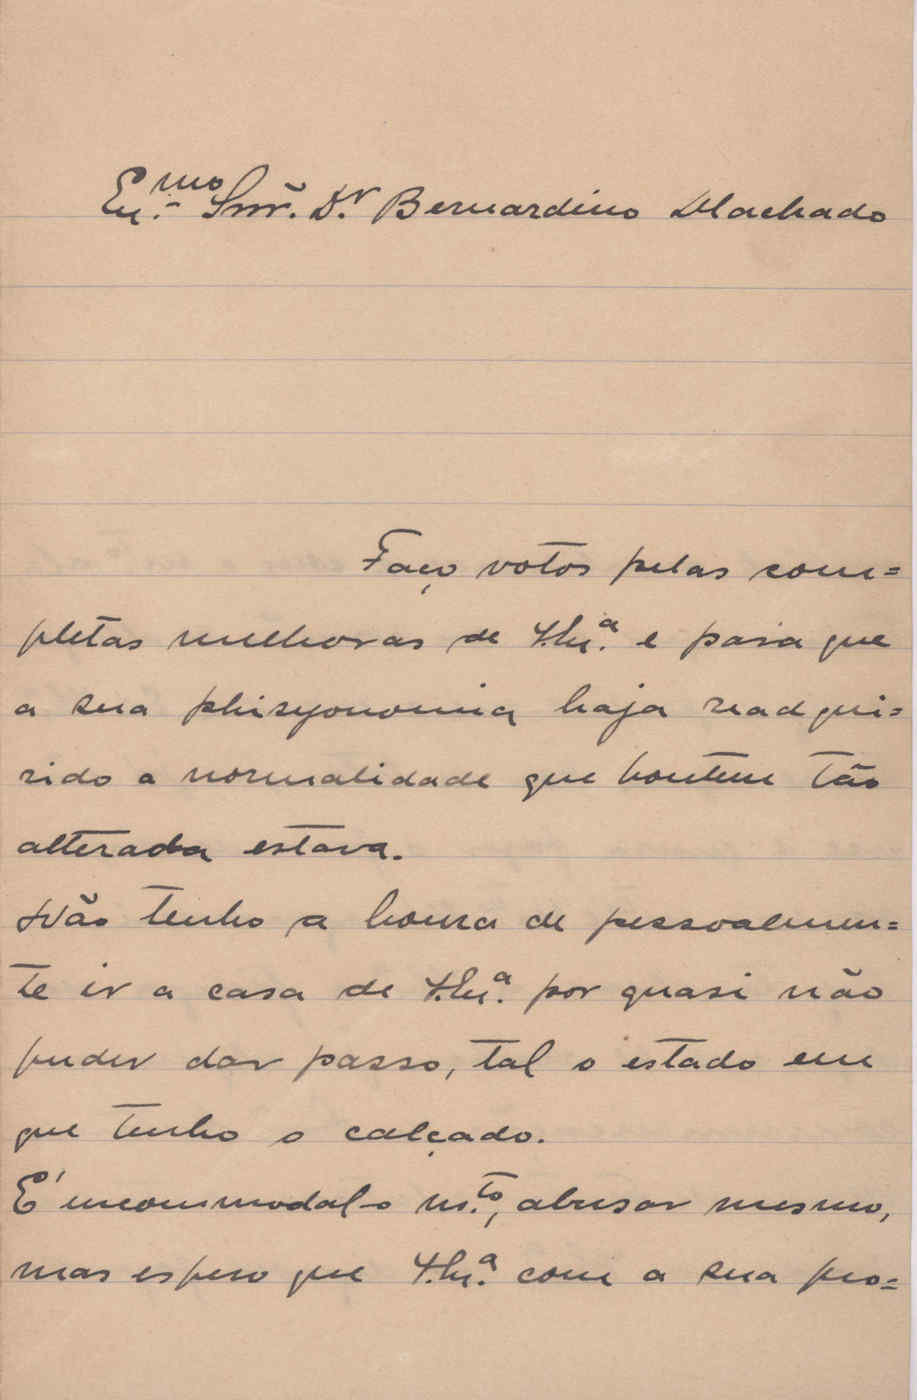 Ex.mo Snr. Dr. Bernardino Machado
Faço votos pelas com=
pletas melhoras de V. Ex.a e para que
a sua phisyonomia haja readqui=
rido a normalidade que hontem tão
alterada estava.
Não tenho a honra de pessoalmen=
te ir a casa de V. Ex.a por quasi não
puder dar passo, tal o estado em
que tenho o calçado.
É incommodal-o m.to, abusar mesmo,
mas espero que V. Ex.a com a sua pro=